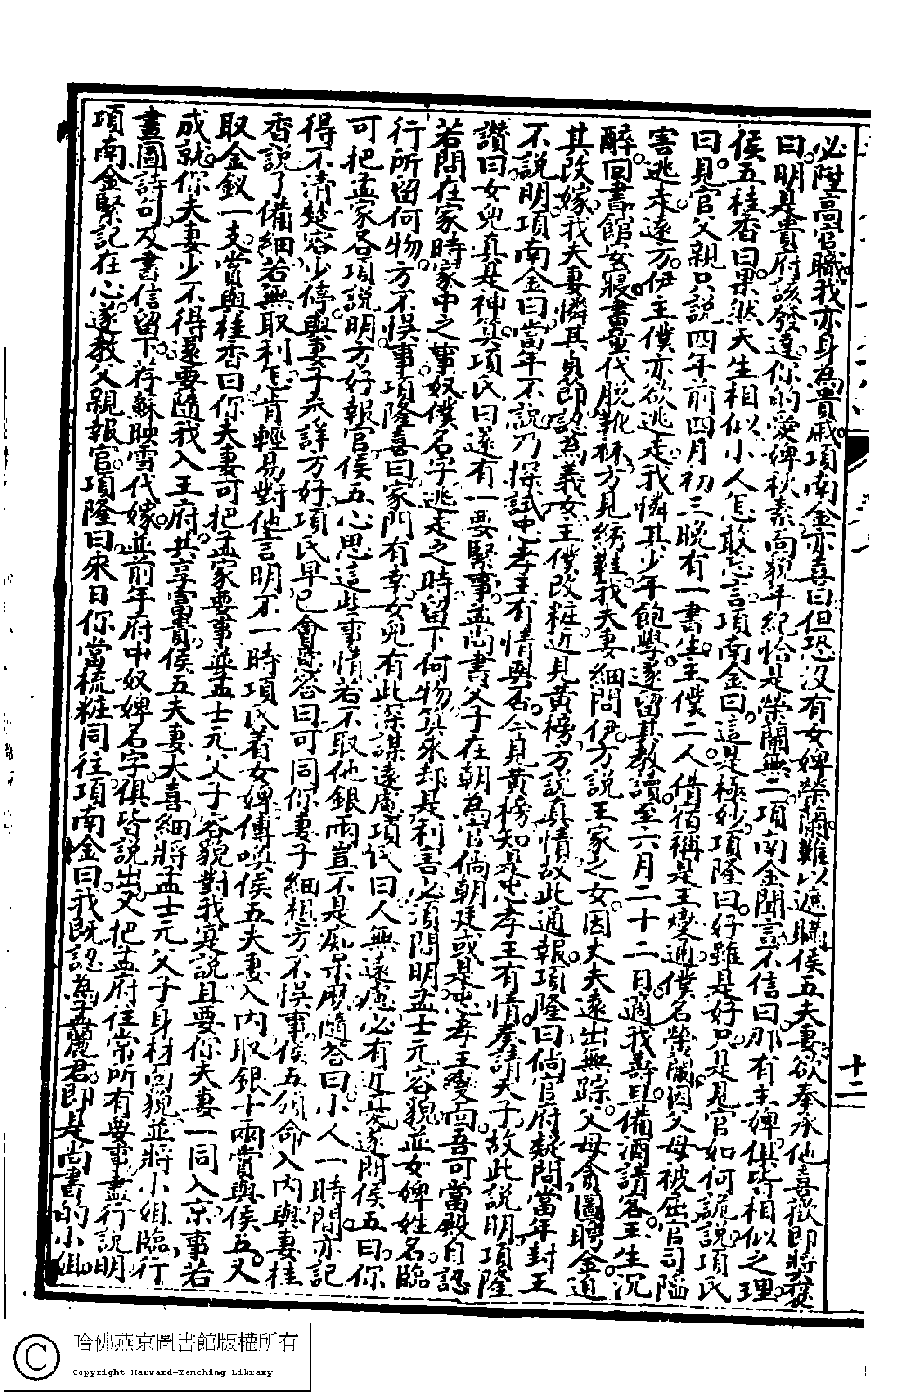 必陞高官職我亦身爲貴戚項南金亦喜曰但恐没有女婢榮蘭難以遮瞞侯五夫妻欲奉承他喜歡即將
曰明是貴府該發達你的愛婢秋素面貌年紀恰是榮蘭無二項南金聞言不信曰那有主婢俱皆相似之理
侯五桂香曰果然天生相似小人怎敢妄言項南金曰這是極妙項隆曰好雖是好只是見官如何說項氏
曰見官父親只說四年前四月初三晚有一書生主僕二人借宿稱是王燮通僕名榮蘭因父母被屈官司陷
害逃走遠方伊主僕亦欲逃走我憐其少年飽學遂留其教讀至六月二十二日適我壽旦備酒請客王生沉
醉回書館安寢書童代脱靴襪方見綉鞋我夫妻細問伊方說王家之女因丈夫遠出無踪父母貪圖聘金逼
其改嫁我夫妻憐其貞即認爲義女主僕改粧近見黃榜方說真情故此通報項隆曰倘官府疑問當年封王
不說明項南金曰當年不說乃探試忠孝王有情與否今見黃榜知是忠孝王有情奏請天子故此說明項隆
讚曰女兒真是神算項氏曰還有一要緊事孟尚書父子在朝為官倘朝廷或是忠孝王雙面吾可當殿自認
若問在家時家中之事奴僕名字逃走之時留下何物算來却是利害必須問明孟士元容貌並女婢姓名臨
行所留何物方不悞事項隆喜曰家門有幸女兒有此深謀遠慮項氏曰人無遠慮必有近憂遂問侯五曰你
可把孟家各項說明方好報官侯五心思這些事情若不取他銀兩豈不是風呆麽隨答曰小人一時間亦記
得不清楚容少停與妻子參詳方好項氏早已會意答曰可同你妻子細想方不悞事侯五領命入內與妻桂
香說了備細若無取利怎肯輕易對他言明不一時項氏着女婢傳喚侯五夫妻入內取銀十兩賞與侯五又
取金釵一支賞與桂香曰你夫妻可把孟家要事並孟士元父子容貌對我寔說且要你夫妻一同入京事若
成就你夫妻少不得還要隨我入王府共享富貴侯五夫妻大喜細將孟士元父子身材面貌並將小姐臨行
畫圖詩句及書信留下存蘇映雪代嫁並前年府中奴婢名字俱皆說出又把孟府往常所有要事盡行說明
項南金緊記在心遂教父親報官項隆曰來日你當梳粧同往項南金曰我既認爲孟麗君即是尚書的小姐
十二
哈佛燕京圖書館版權所有
Copyright Harvard-Yenching Library